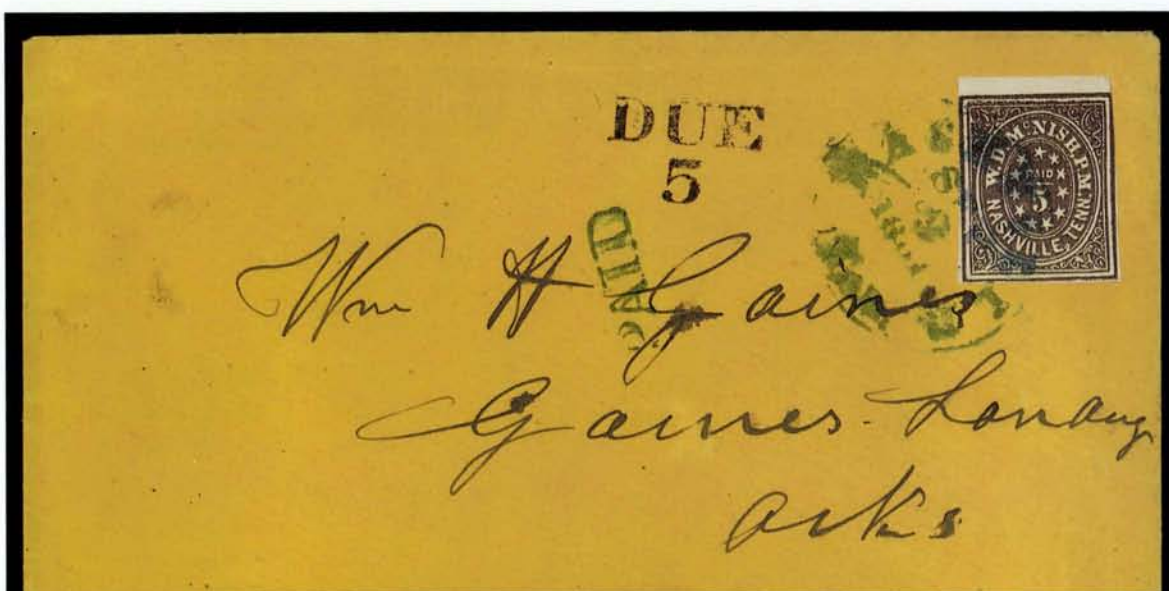 DUE
5
PAID
W.D. McNISH, P.M.
PAID
5
NASHVILLE, TENN.
1861
Wm H Gaines
Gaines Landing
Arks